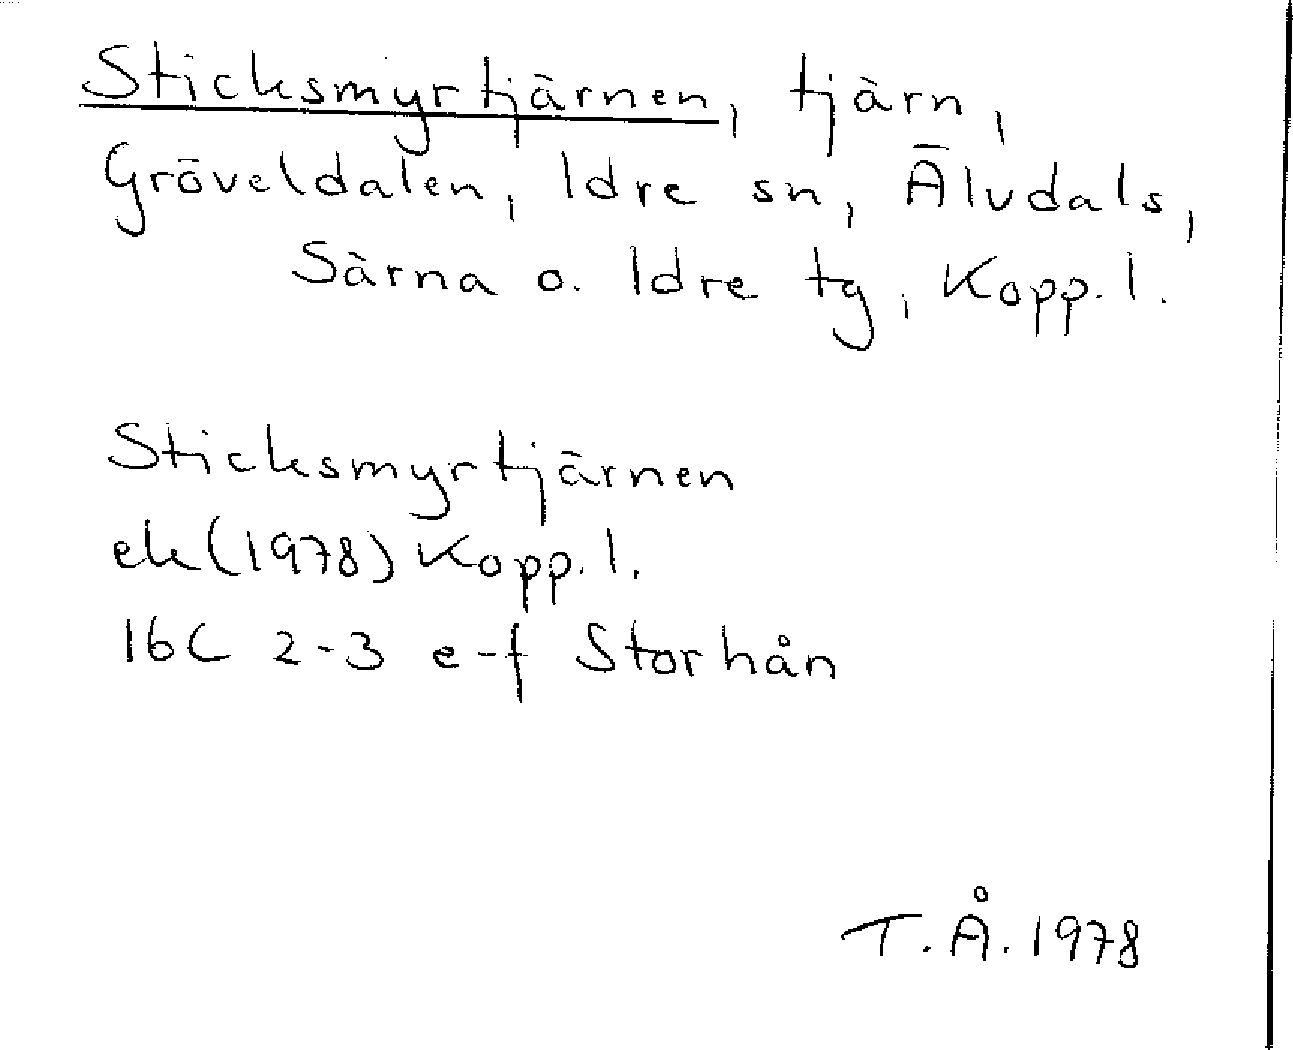 Sticksmyrtjärnen, tjärn,
Gröveldalen, Idre sn, Älvdals,
Särna o. Idre tg, Kopp. l.
Sticksmyrtjärnen
ek (1978) Kopp. l.
16C 2-3 e-f Storhån
T. Å. 1978